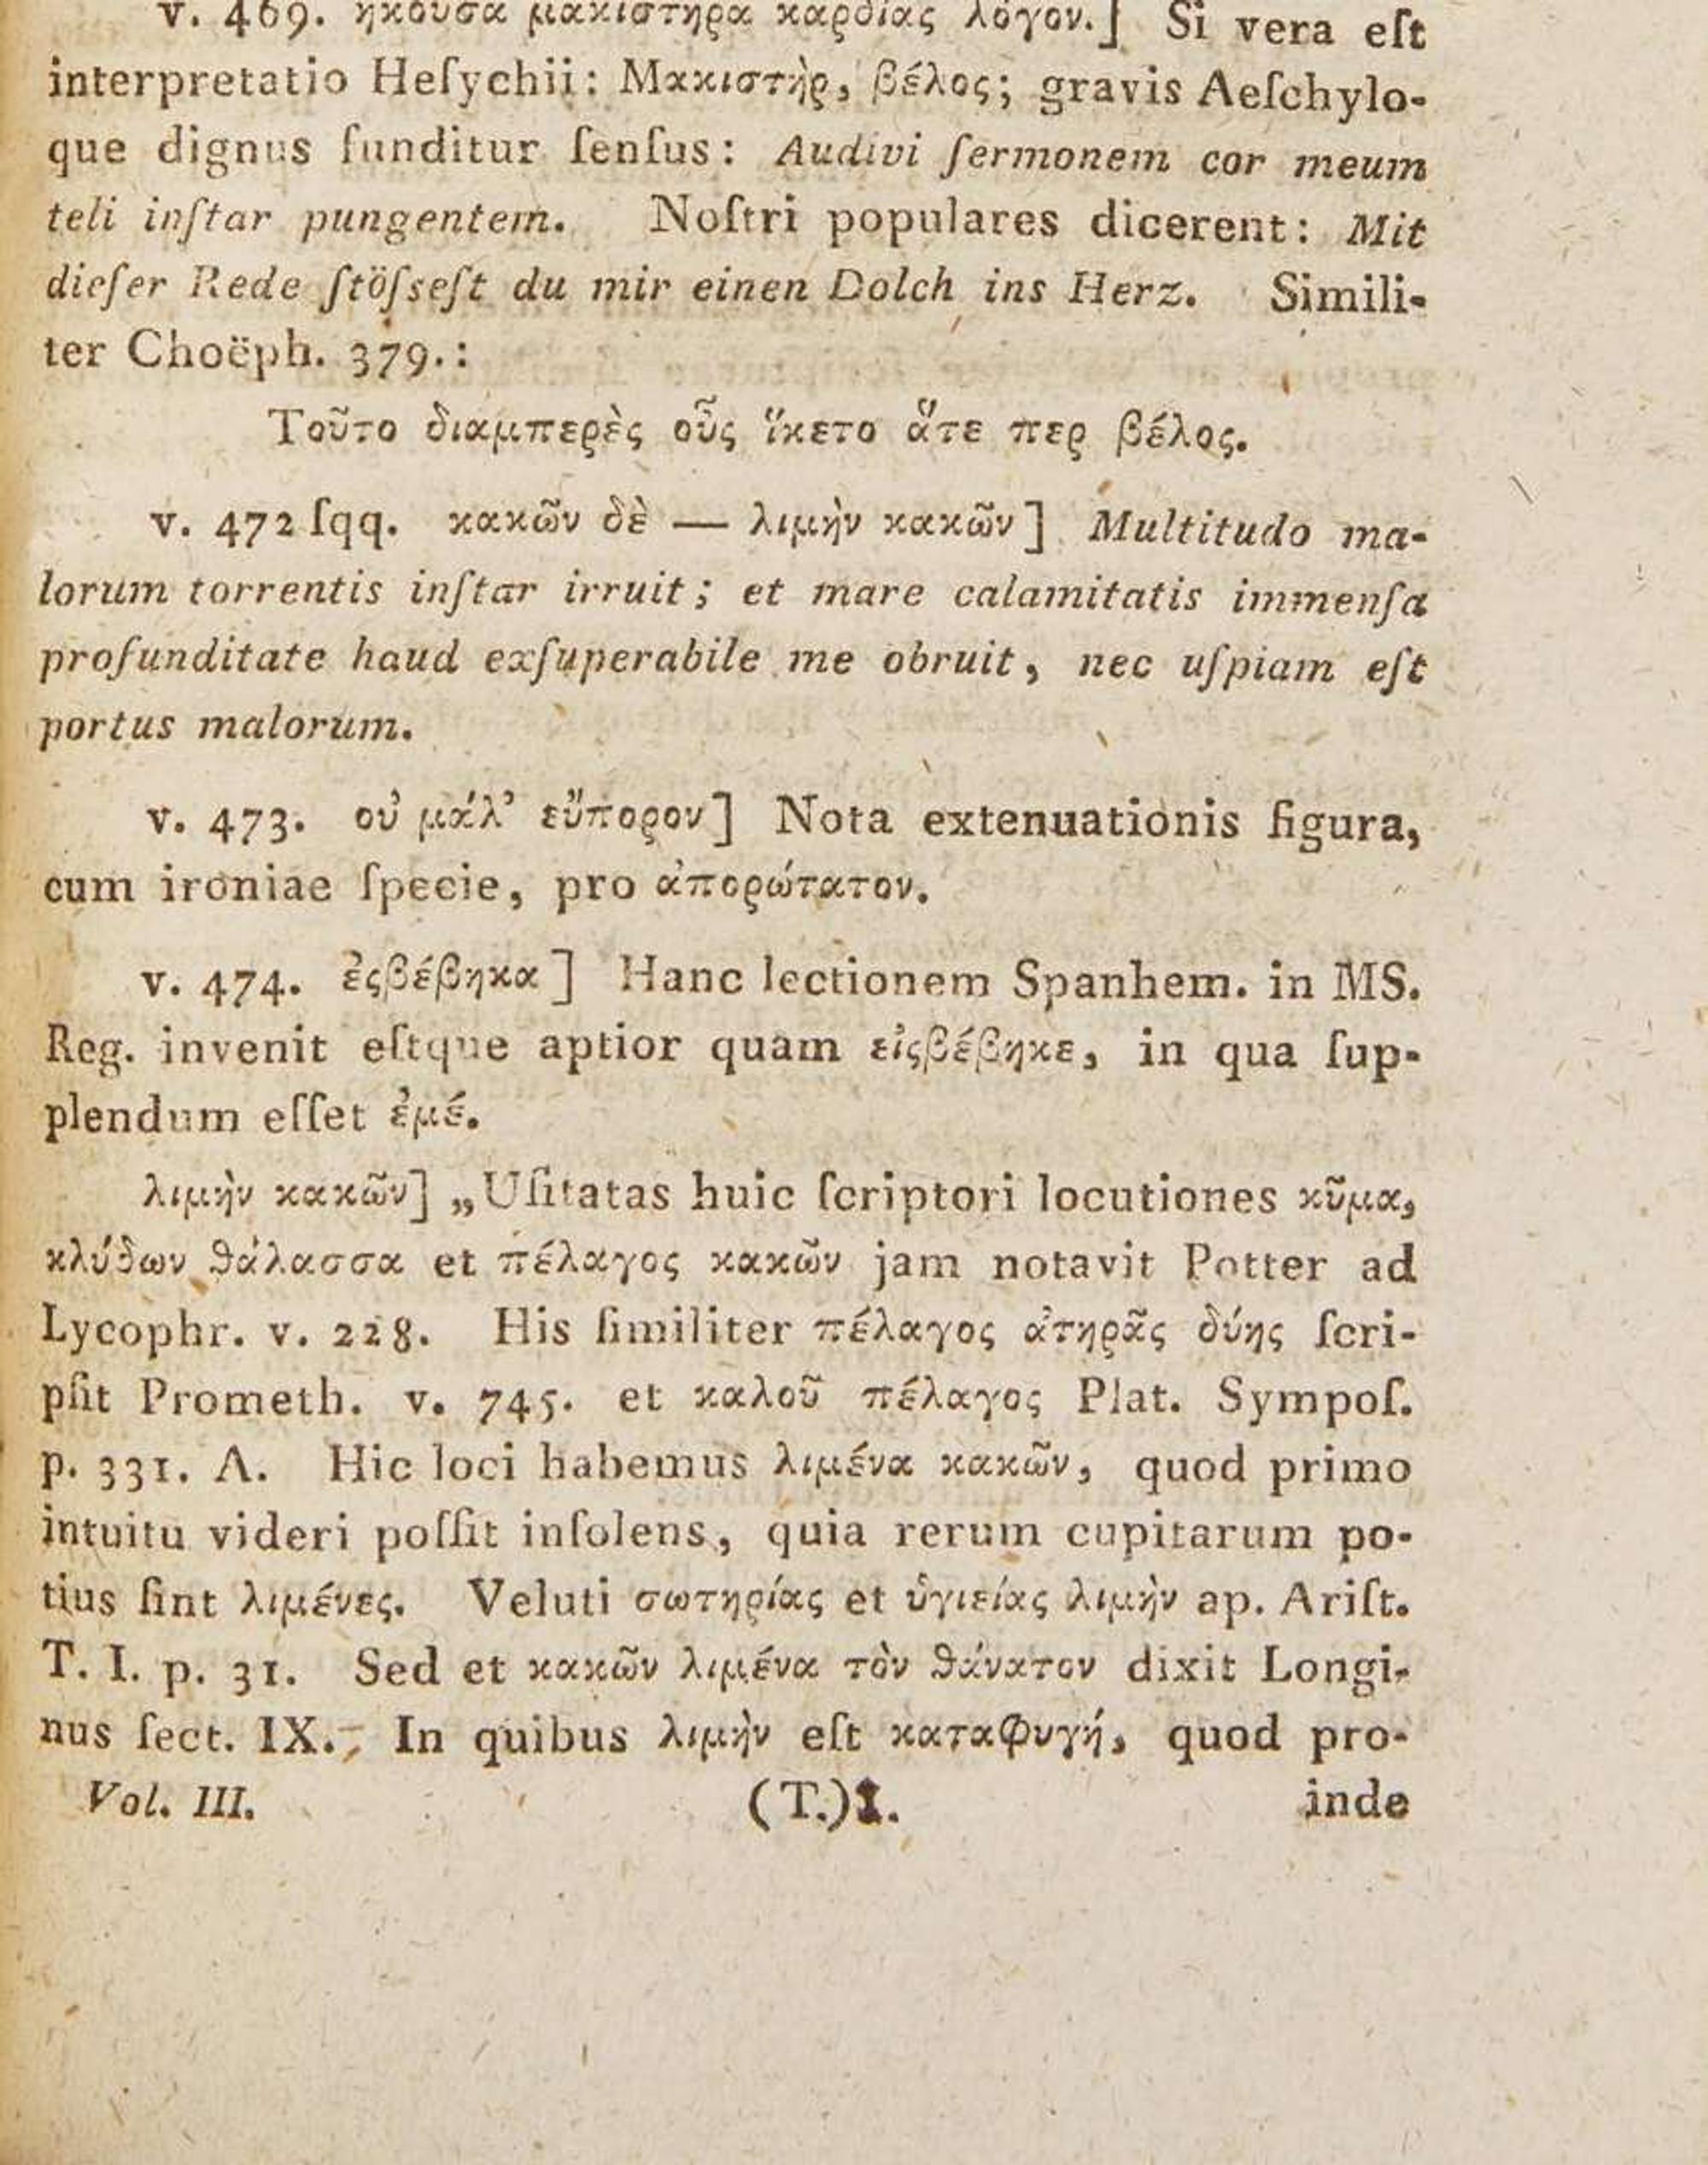 v. 469. ἤκουσα μακιστῆρα καρδίας λόγον.] Si vera eſt
interpretatio Heſychii: Μακιστὴρ, βέλος; gravis Aeſchylo-
que dignus funditur ſenſus: Audivi ſermonem cor meum
teli inſtar pungentem. Noſtri populares dicerent: Mit
dieſer Rede ſtöſseſt du mir einen Dolch ins Herz. Simili-
ter Choëph. 379.:
Τοῦτο διαμπερὲς οὖς ἵκετο ἅτε περ βέλος.
v. 472 ſqq. κακῶν δὲ — λιμὴν κακῶν] Multitudo ma-
lorum torrentis inſtar irruit; et mare calamitatis immenſa
profunditate haud exſuperabile me obruit, nec uſpiam eſt
portus malorum.
v. 473. οὐ μάλ’ εὔπορον] Nota extenuationis figura,
cum ironiae ſpecie, pro ἀπορώτατον.
v. 474. ἐςβέβηκα] Hanc lectionem Spanhem. in MS.
Reg. invenit eſtque aptior quam εἰςβέβηκε, in qua ſup-
plendum eſſet ἐμέ.
λιμὴν κακῶν] „Uſitatas huic ſcriptori locutiones κῦμα,
κλύδων θάλασσα et πέλαγος κακῶν jam notavit Potter ad
Lycophr. v. 228. His ſimiliter πέλαγος ἀτηρᾶς δύης ſcri-
pſit Prometh. v. 745. et καλοῦ πέλαγος Plat. Sympoſ.
p. 331. A. Hic loci habemus λιμένα κακῶν, quod primo
intuitu videri poſſit inſolens, quia rerum cupitarum po-
tius ſint λιμένες. Veluti σωτηρίας et ὑγιείας λιμὴν ap. Ariſt.
T. I. p. 31. Sed et κακῶν λιμένα τὸν θάνατον dixit Longi-
nus ſect. IX. In quibus λιμὴν eſt καταφυγή, quod pro-
Vol. III. (T.)I. inde